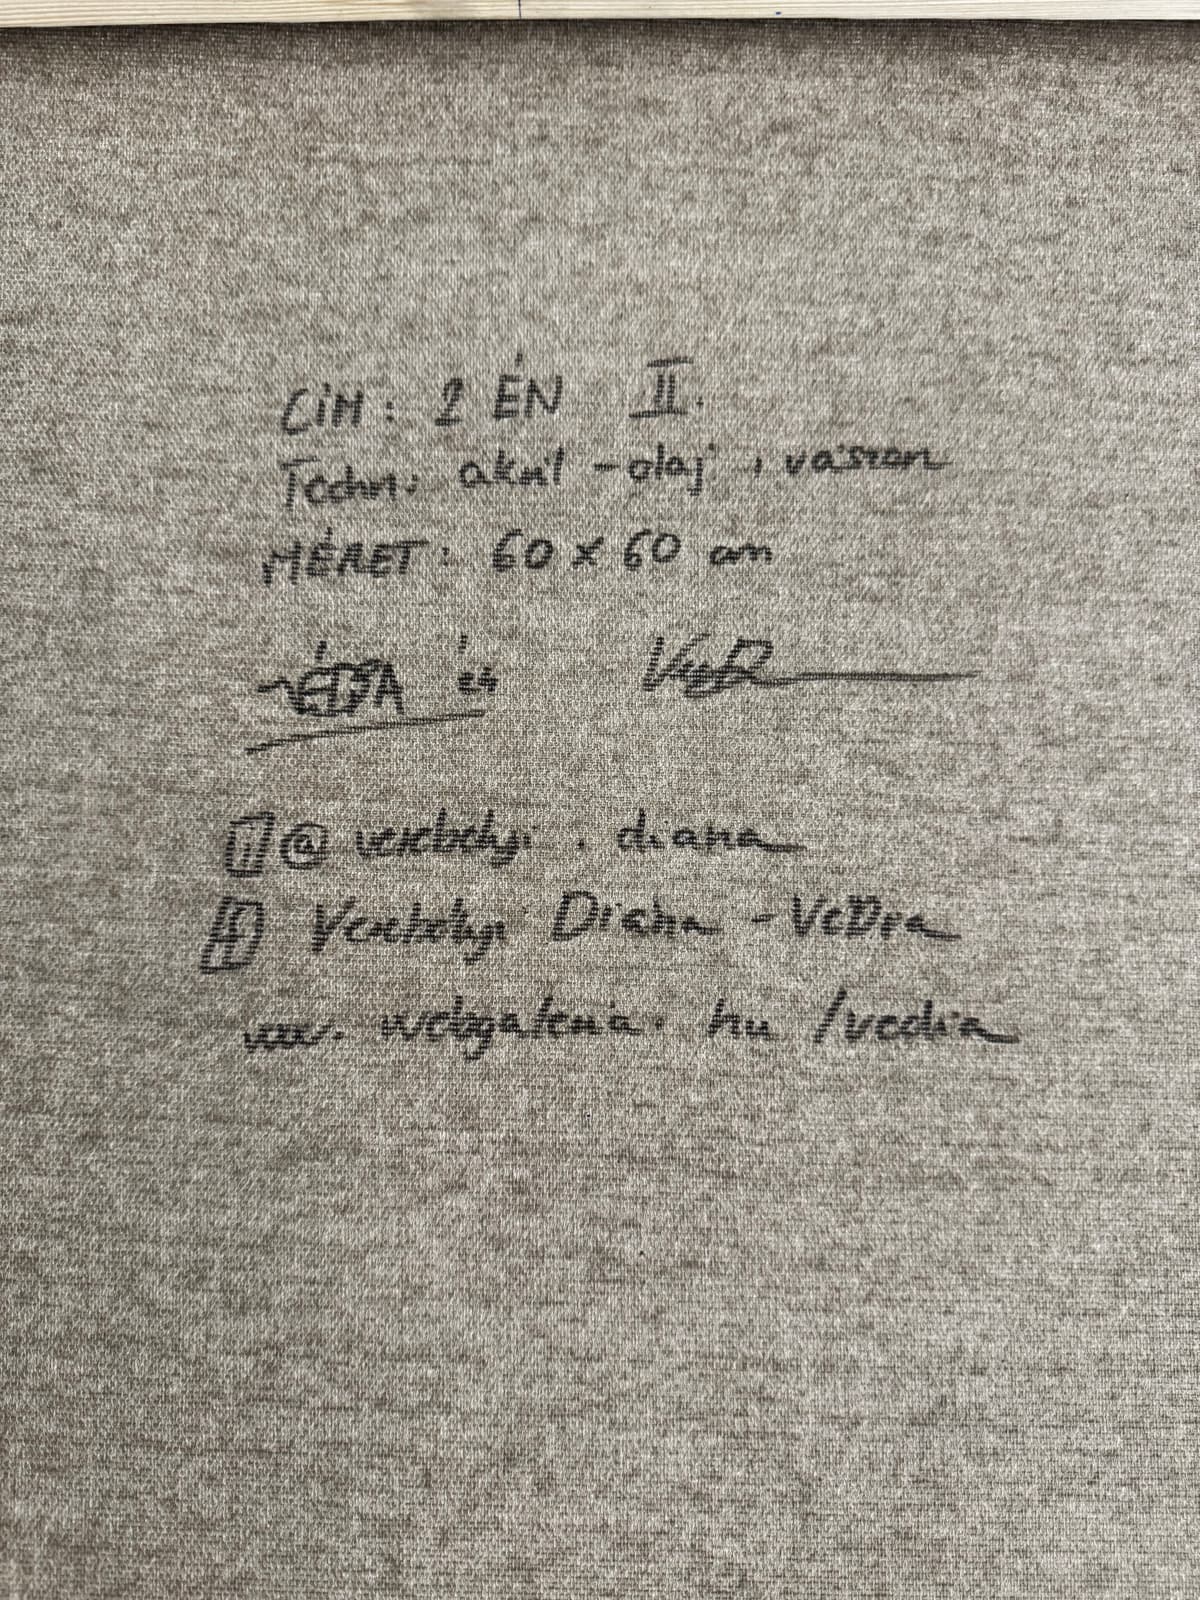 CÍM: 2 ÉN II.
Techn: akril - olaj, vászon
MÉRET: 60 x 60 cm
és
@verebelyi.diana
Verebelyi Diana - VeDra
www.webgaleria.hu/vedra